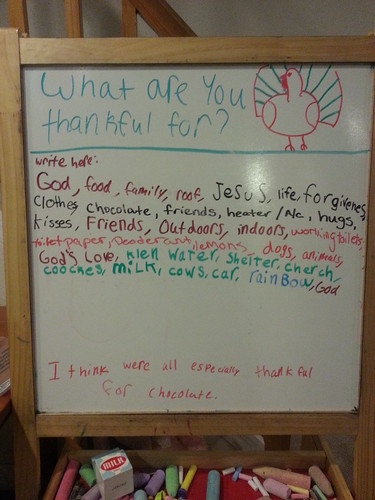 What are You
thankful for?
write here:
God, food, family, roof, Jesus, life, forgiveness,
Clothes, Chocolate, friends, heater/A/c, hugs,
kisses, Friends, Outdoors, indoors, working toilets,
toilet paper, Deoderant, lemons, dogs, animals,
God's Love, klen water, Shelter, cherch,
coockes, milk, cows, car, rainBow, God
I think were all especially thankful
for chocolate.
MILK